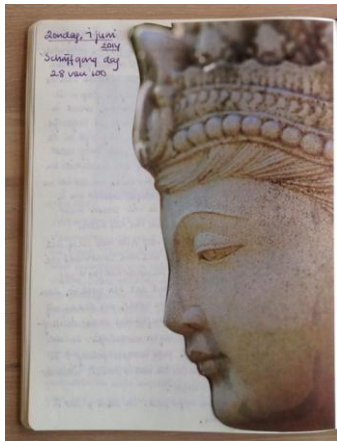 Zondag, 1 juni
2014
Schrijfgang dag
28 van 100